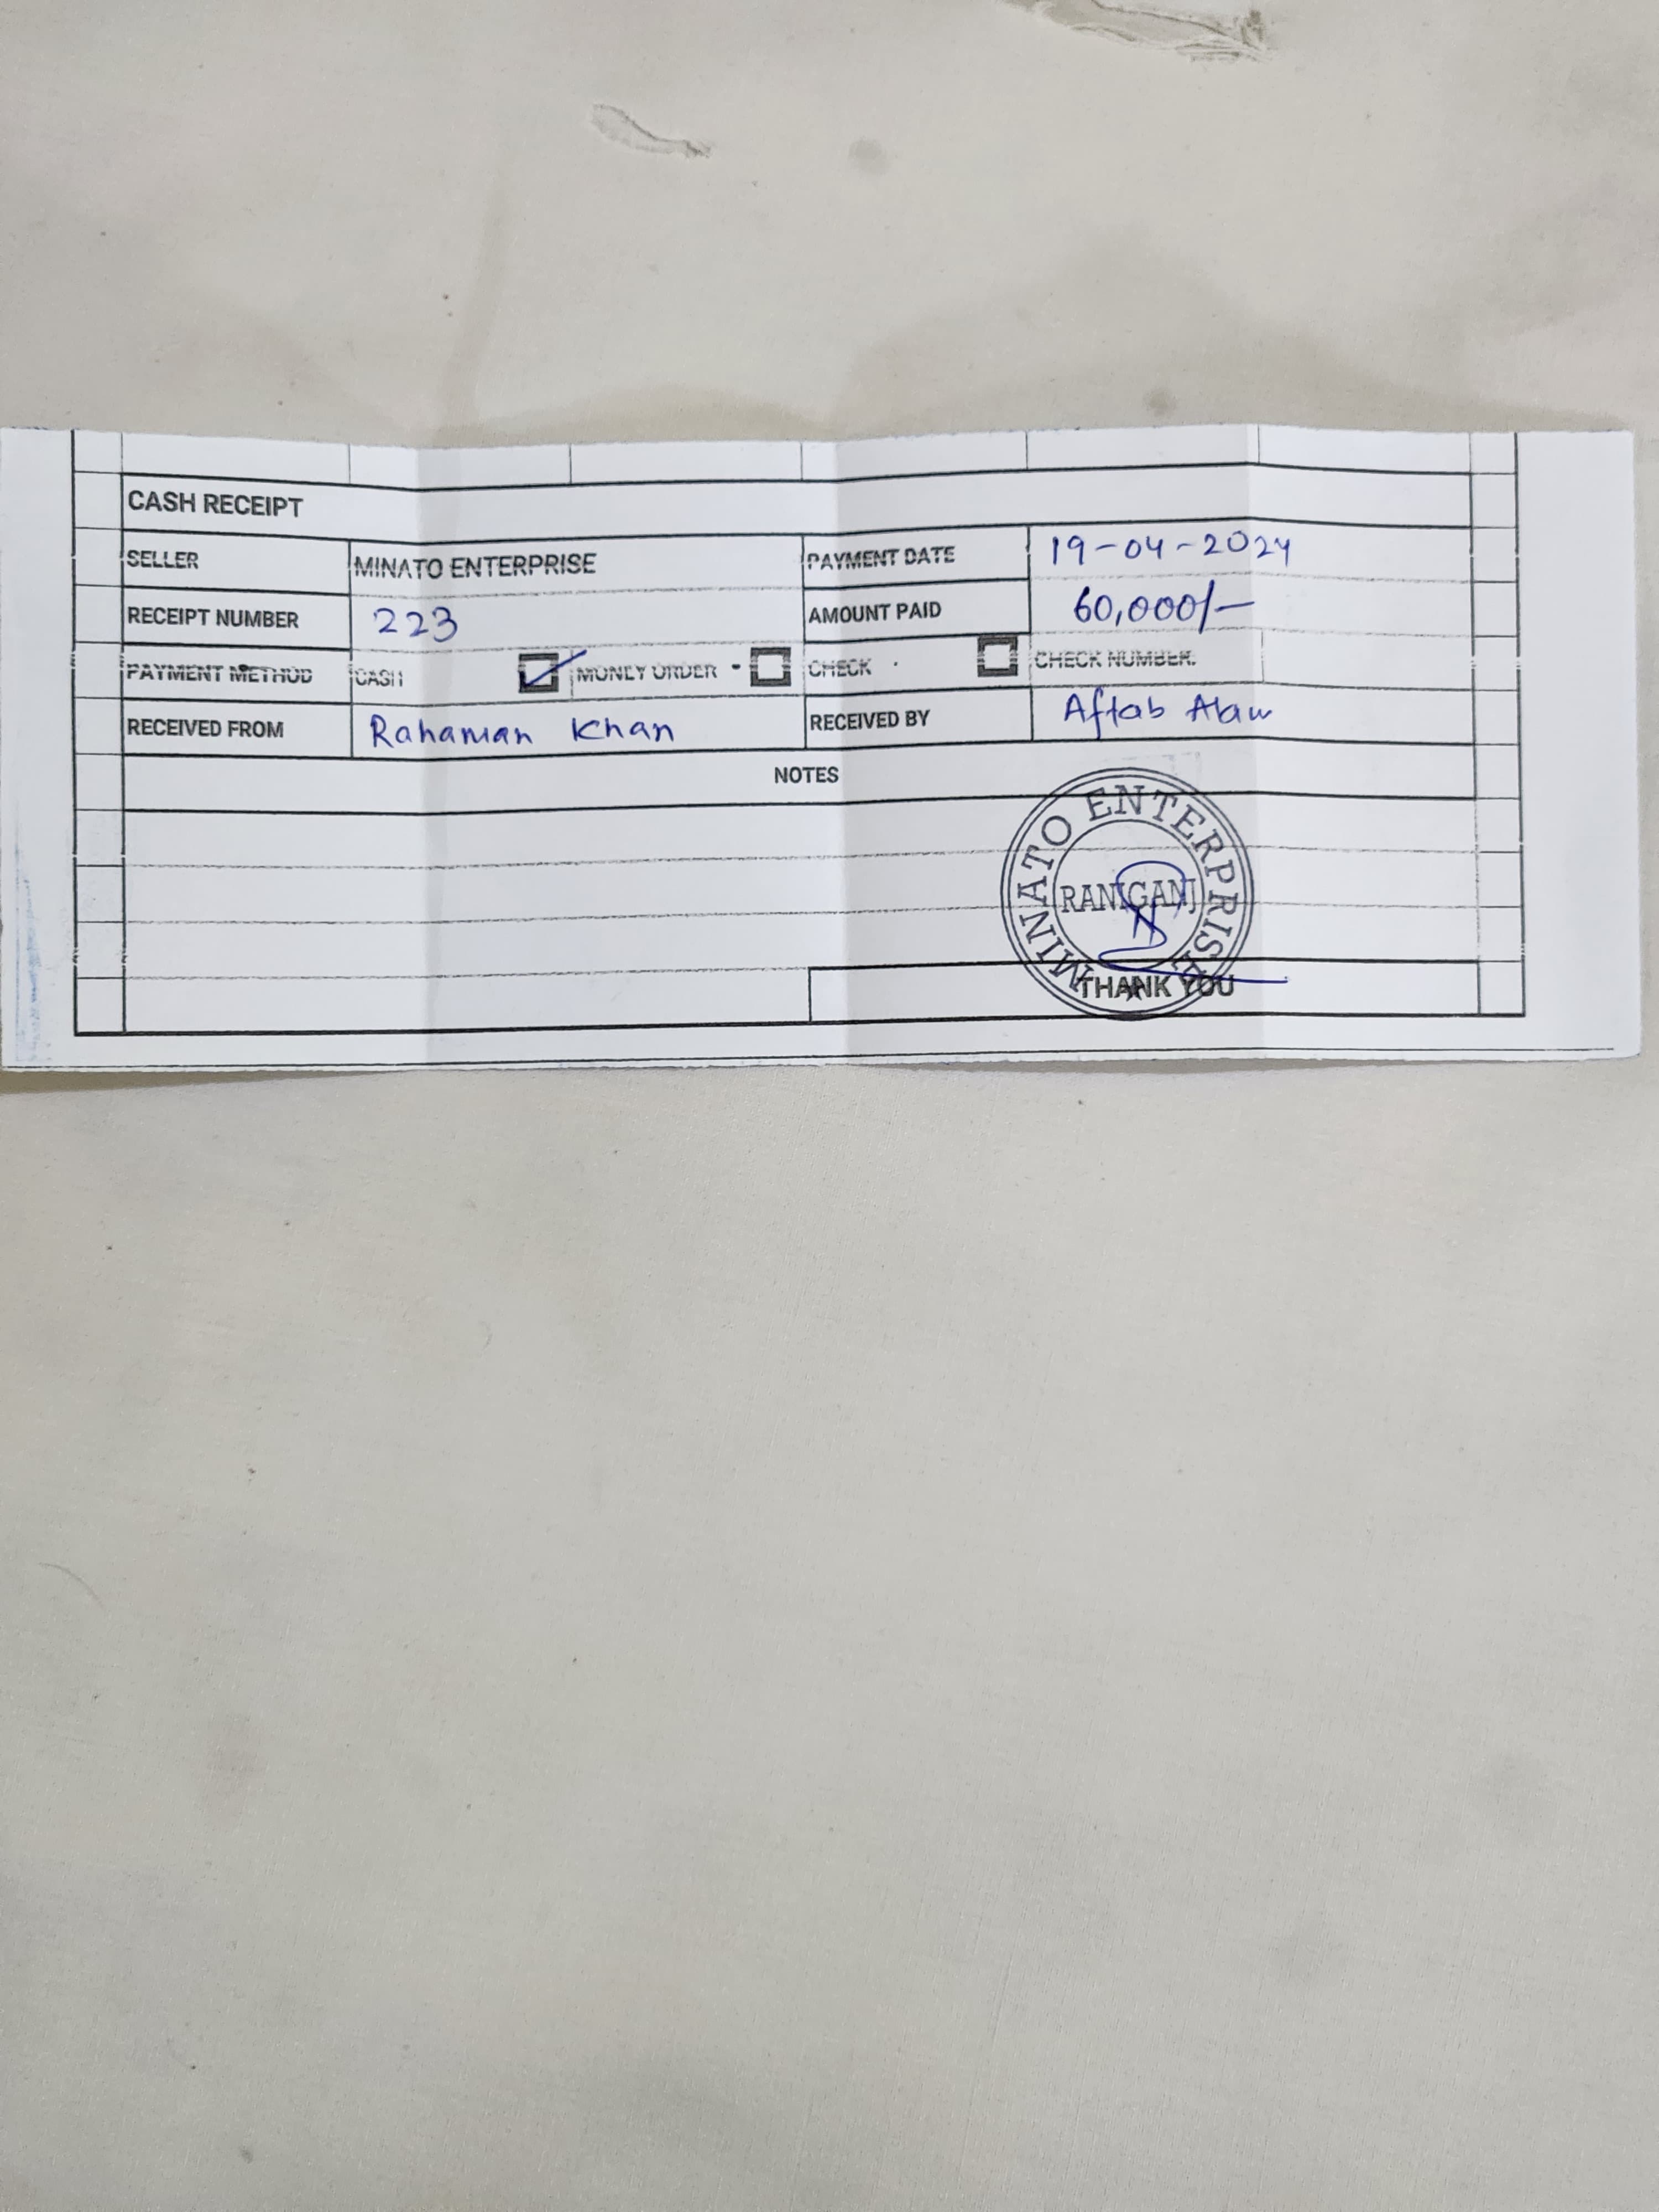 CASH RECEIPT
SELLER MINATO ENTERPRISE PAYMENT DATE 19-04-2024
RECEIPT NUMBER 223 AMOUNT PAID 60,000/-
PAYMENT METHOD CASH MONEY ORDER - CHECK CHECK NUMBER.
RECEIVED FROM Rahaman Khan RECEIVED BY Aftab Alam
NOTES
MINATO ENTERPRISE
RANIGANJ
THANK YOU